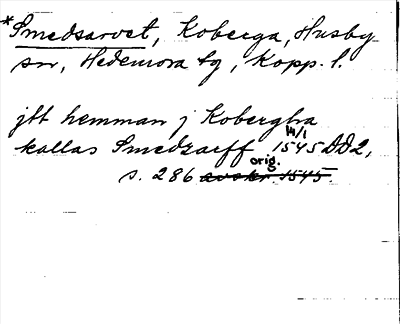 *Smedsarvet, Koberga, Husby
sn, Hedemora tg, Kopp. l.
jtt hemman j Kobergha
kallas Smedzarff 14/1 1545 DD2,
s. 286 orig. avskr. 1545.